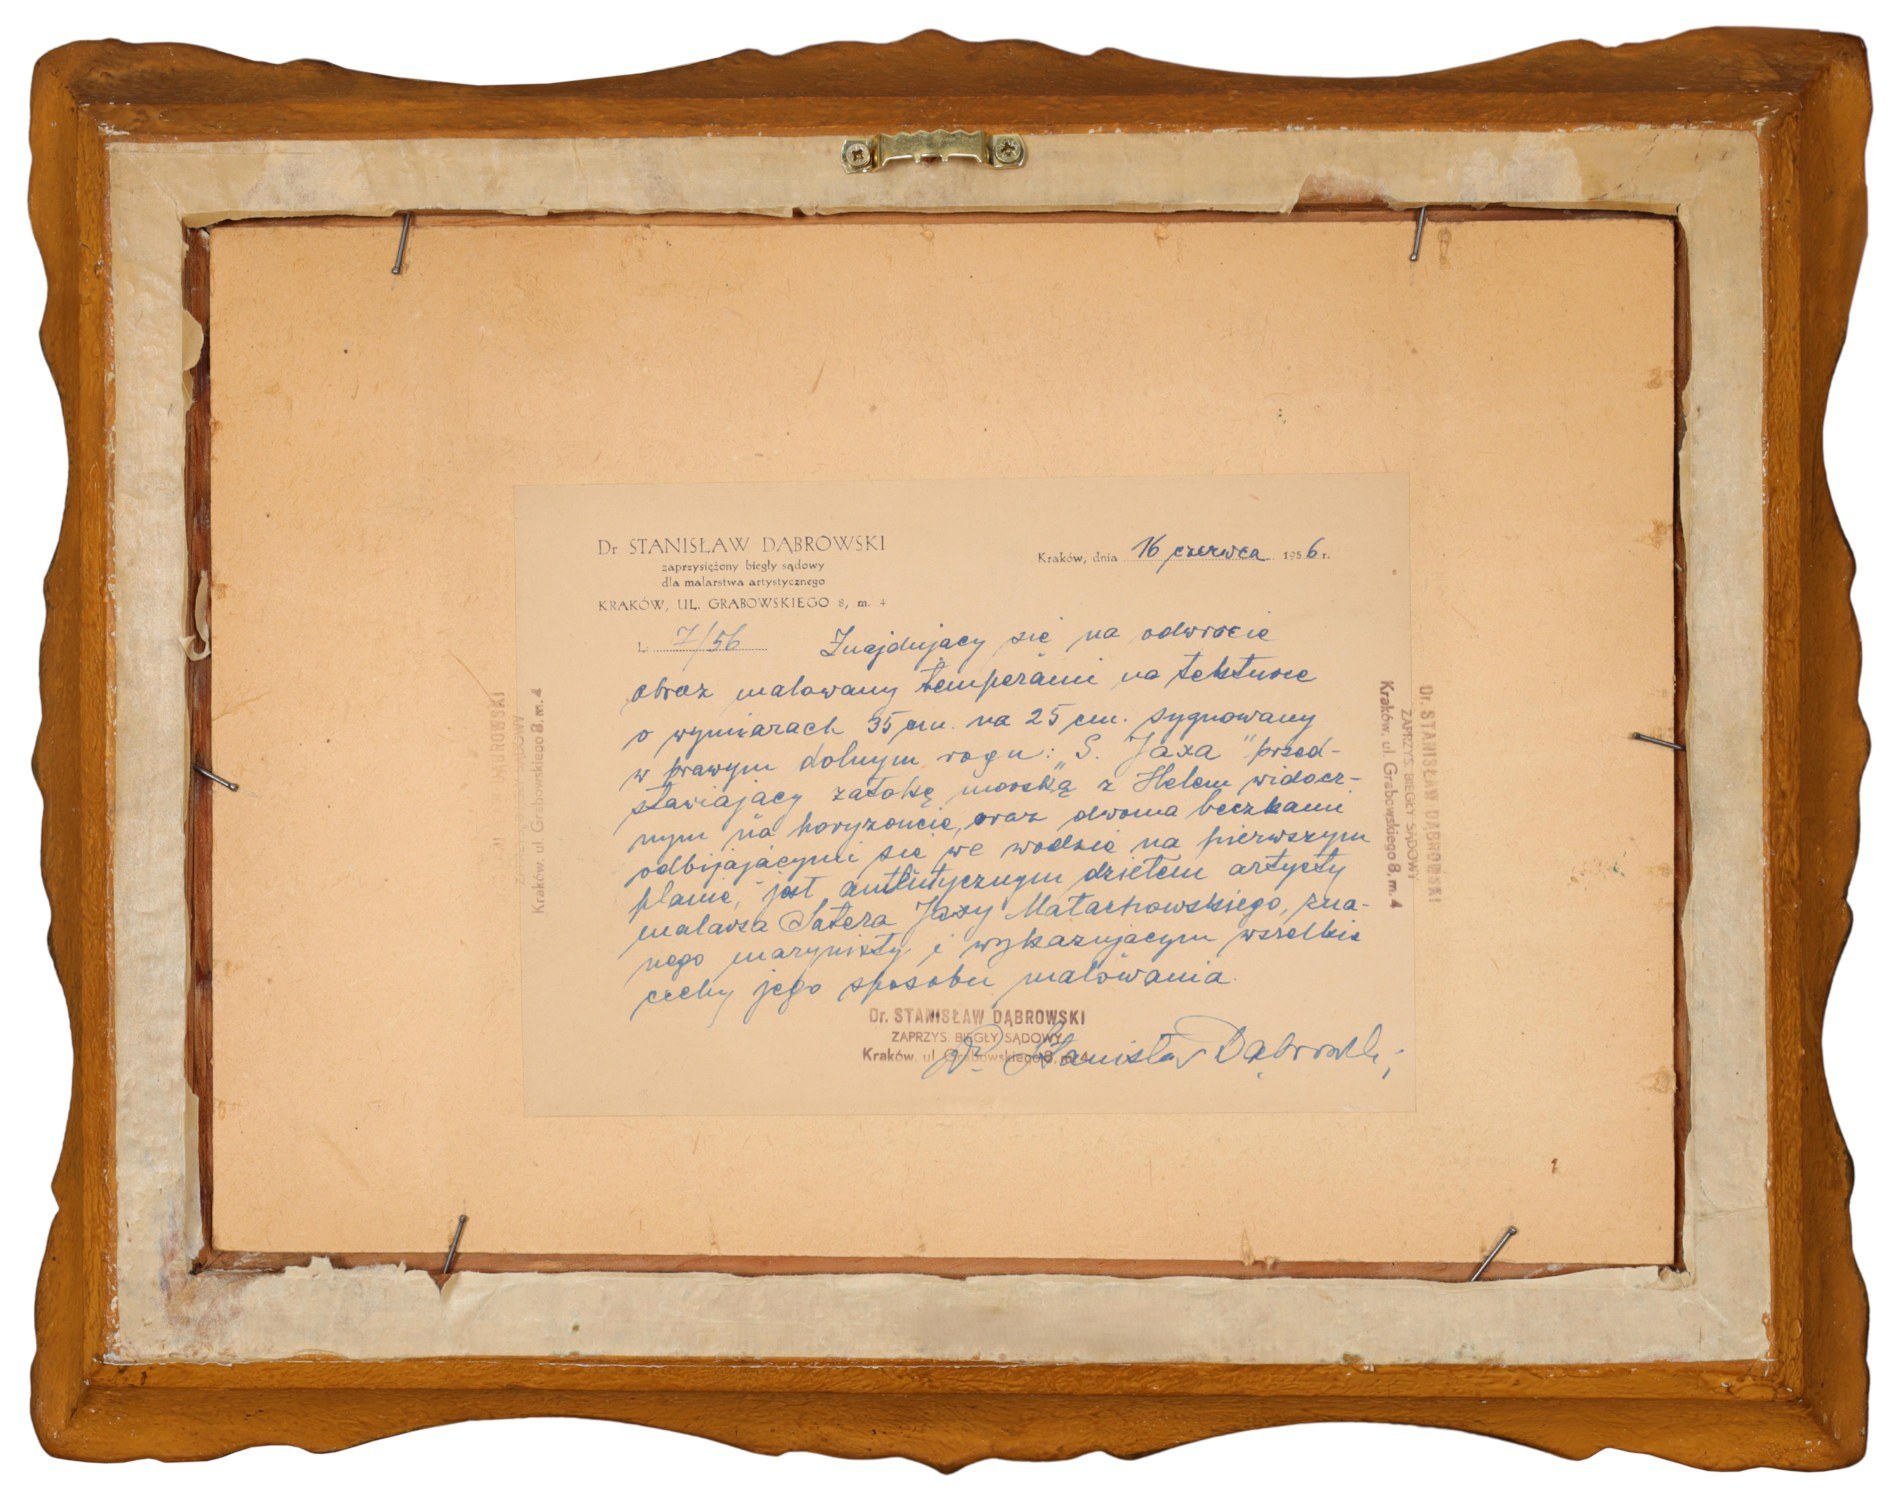 Dr STANISŁAW DĄBROWSKI
zaprzysiężony biegły sądowy
dla malarstwa artystycznego
KRAKÓW, UL. GRABOWSKIEGO 8, m. 4
Kraków, dnia 16 czerwca 1956 r.
L. 7/56 Znajdujący się na odwrocie
obraz malowany temperami na tekturze
o wymiarach 35 cm. na 25 cm. sygnowany
w prawym dolnym rogu: "S. Jaxa" przed-
stawiający zatokę morską z Helem widocz-
nym na horyzoncie, oraz dwoma beczkami
odbijającymi się we wodzie na pierwszym
planie, jest autentycznym dziełem artysty
malarza Sotera Jaxy Małachowskiego, zna-
nego marynisty i wykazującym wszelkie
cechy jego sposobu malowania.
Dr. STANISŁAW DĄBROWSKI
ZAPRZYS. BIEGŁY SĄDOWY
Kraków, ul Grabowskiego 8, m. 4
Dr Stanisław Dąbrowski
Kraków, ul. Grabowskiego 8 m. 4
Dr. STANISŁAW DĄBROWSKI
ZAPRZYS. BIEGŁY SĄDOWY
Kraków, ul Grabowskiego 8 m. 4